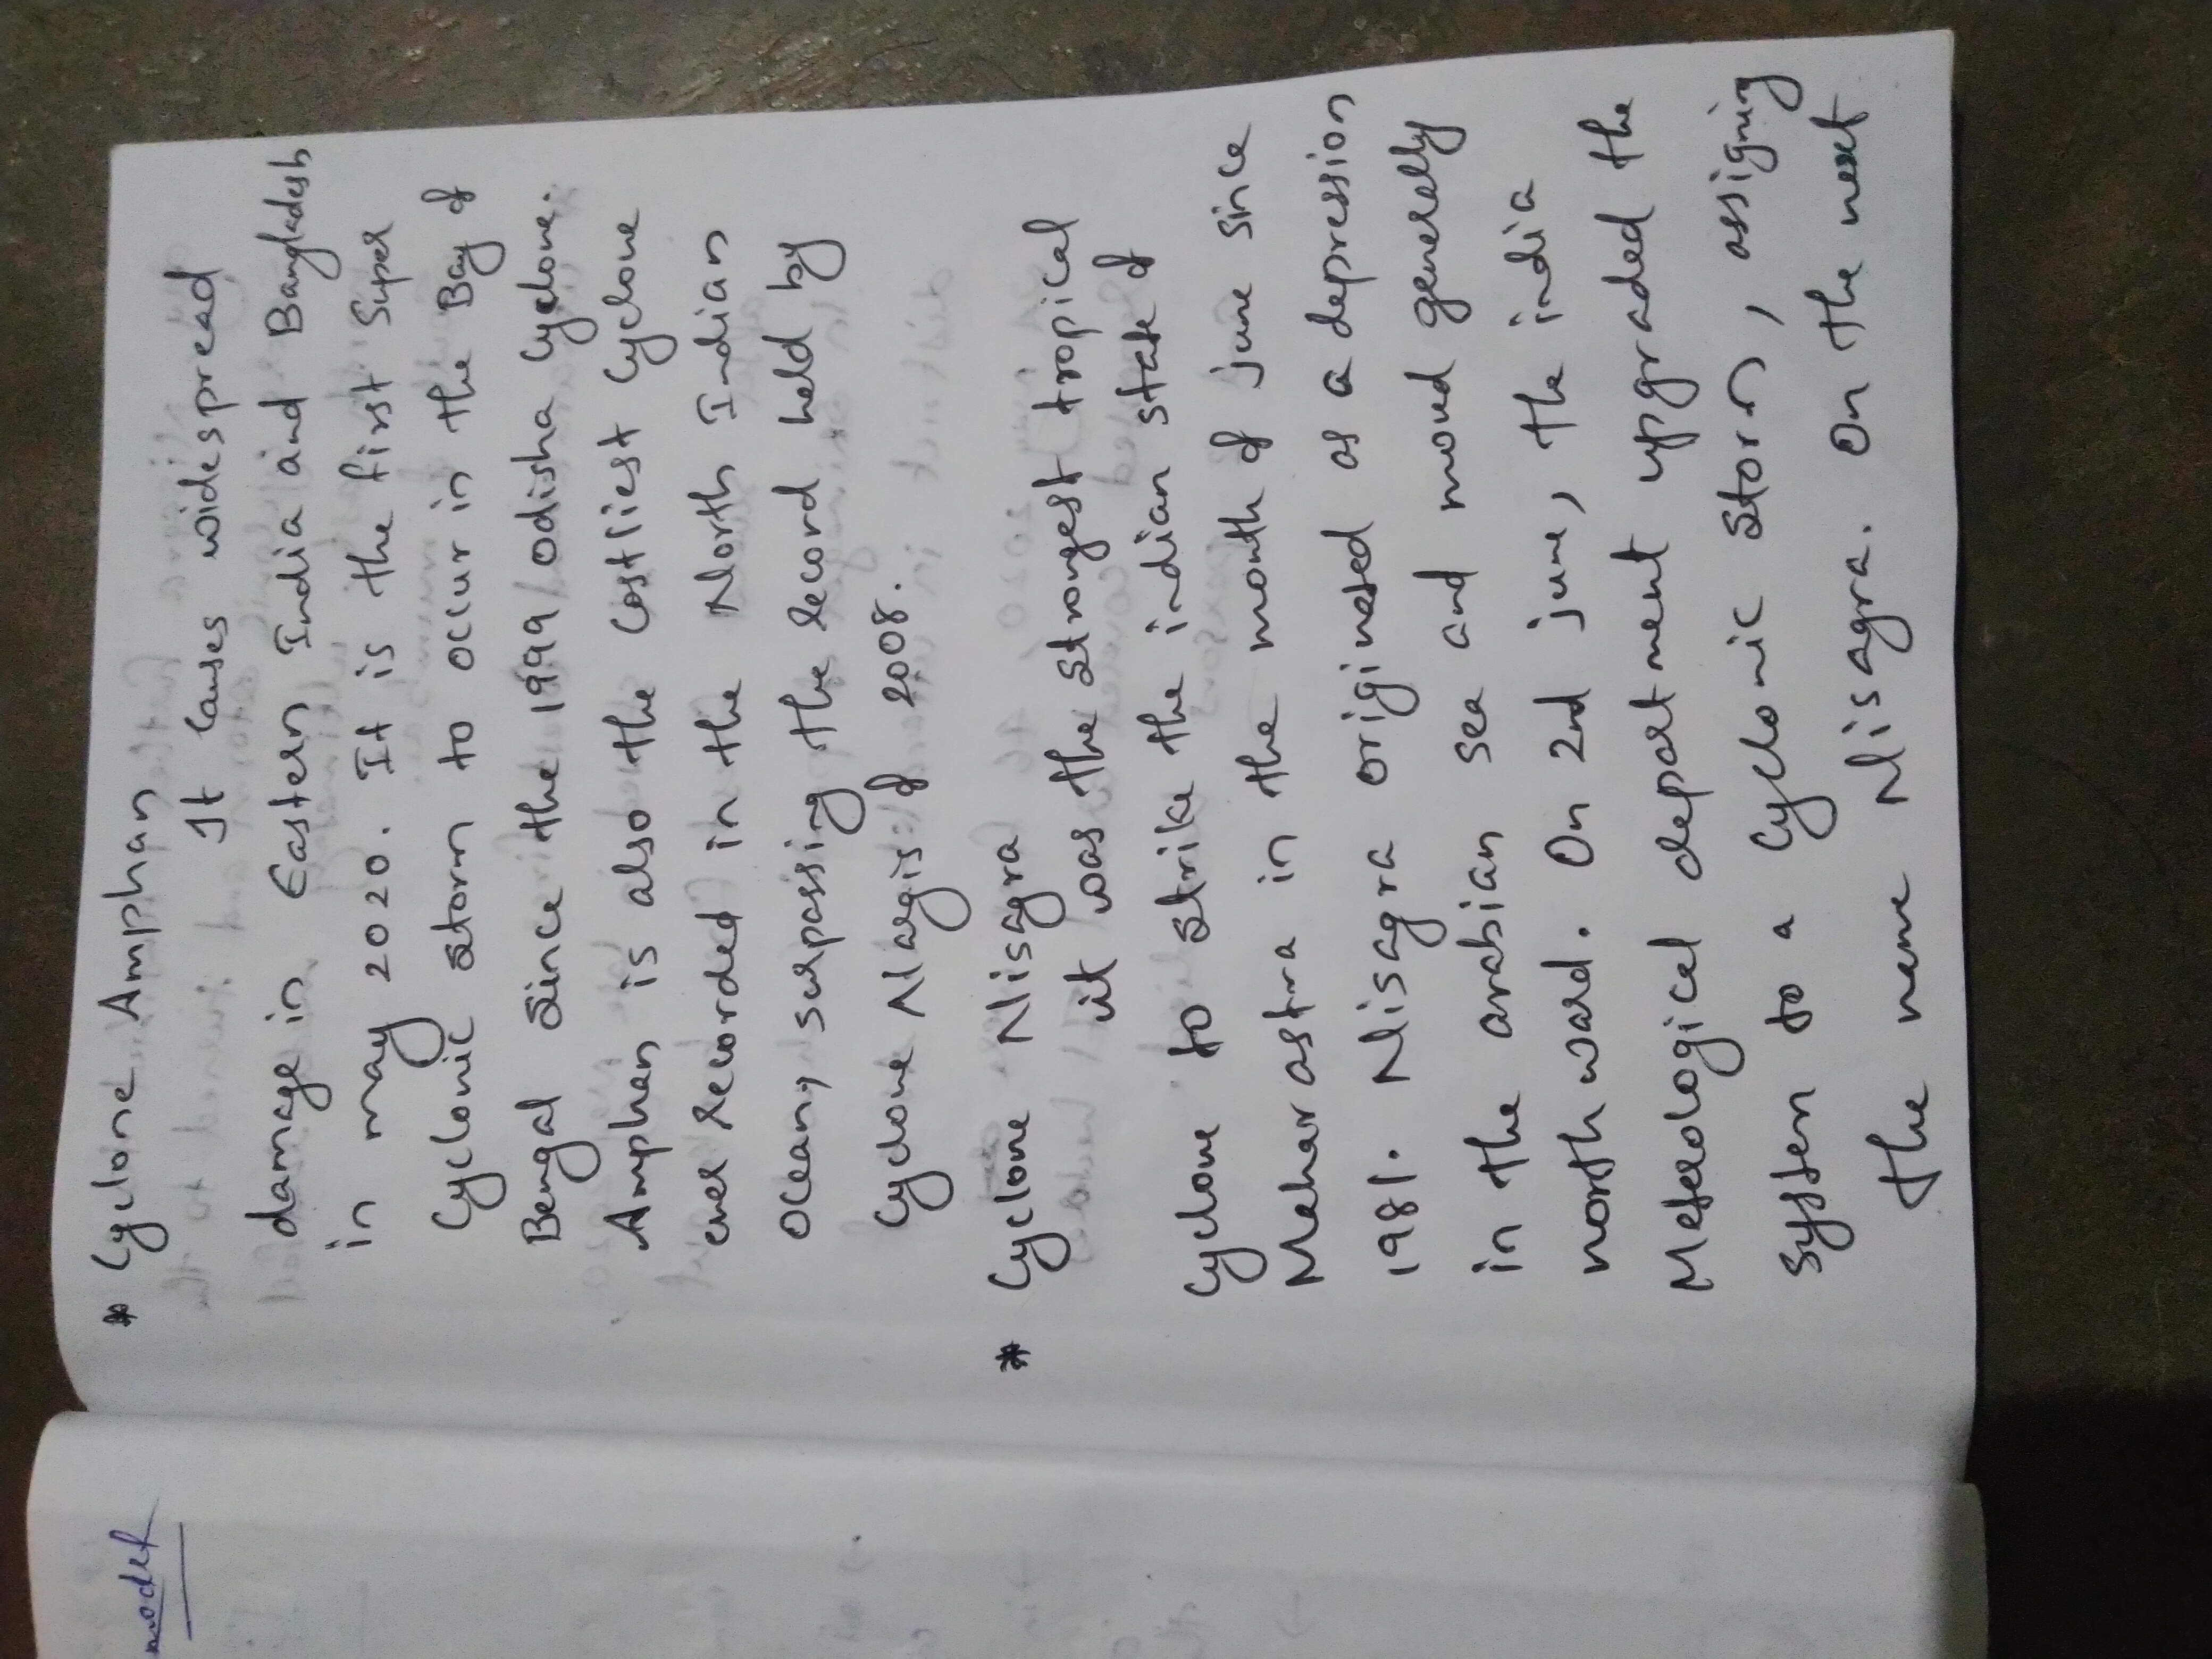 model
* Cyclone Amphan
It causes widespread
damage in Eastern India and Bangladesh
in may 2020. It is the first Super
Cyclonic storm to occur in the Bay of
Bengal since the 1999 odisha Cyclone.
Amphan is also the costliest Cyclone
ever recorded in the North Indian
Ocean, surpassing the record held by
Cyclone Nargis of 2008.
* Cyclone Nisagra
it was the strongest tropical
Cyclone to strike the indian state of
Maharastra in the month of june since
1981. Nisagra originated as a depression
in the arabian sea and moved generally
north ward. On 2nd june, the india
Meterological department upgraded the
system to a Cyclonic storm, assigning
the name Nisagra. On the next